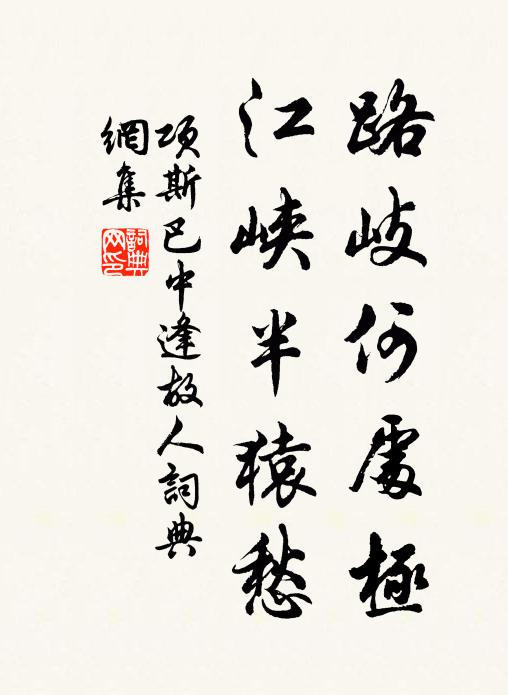 路岐何處極
江峽半猿愁
項斯巴中逢故人詞典
網集
詞典
网印